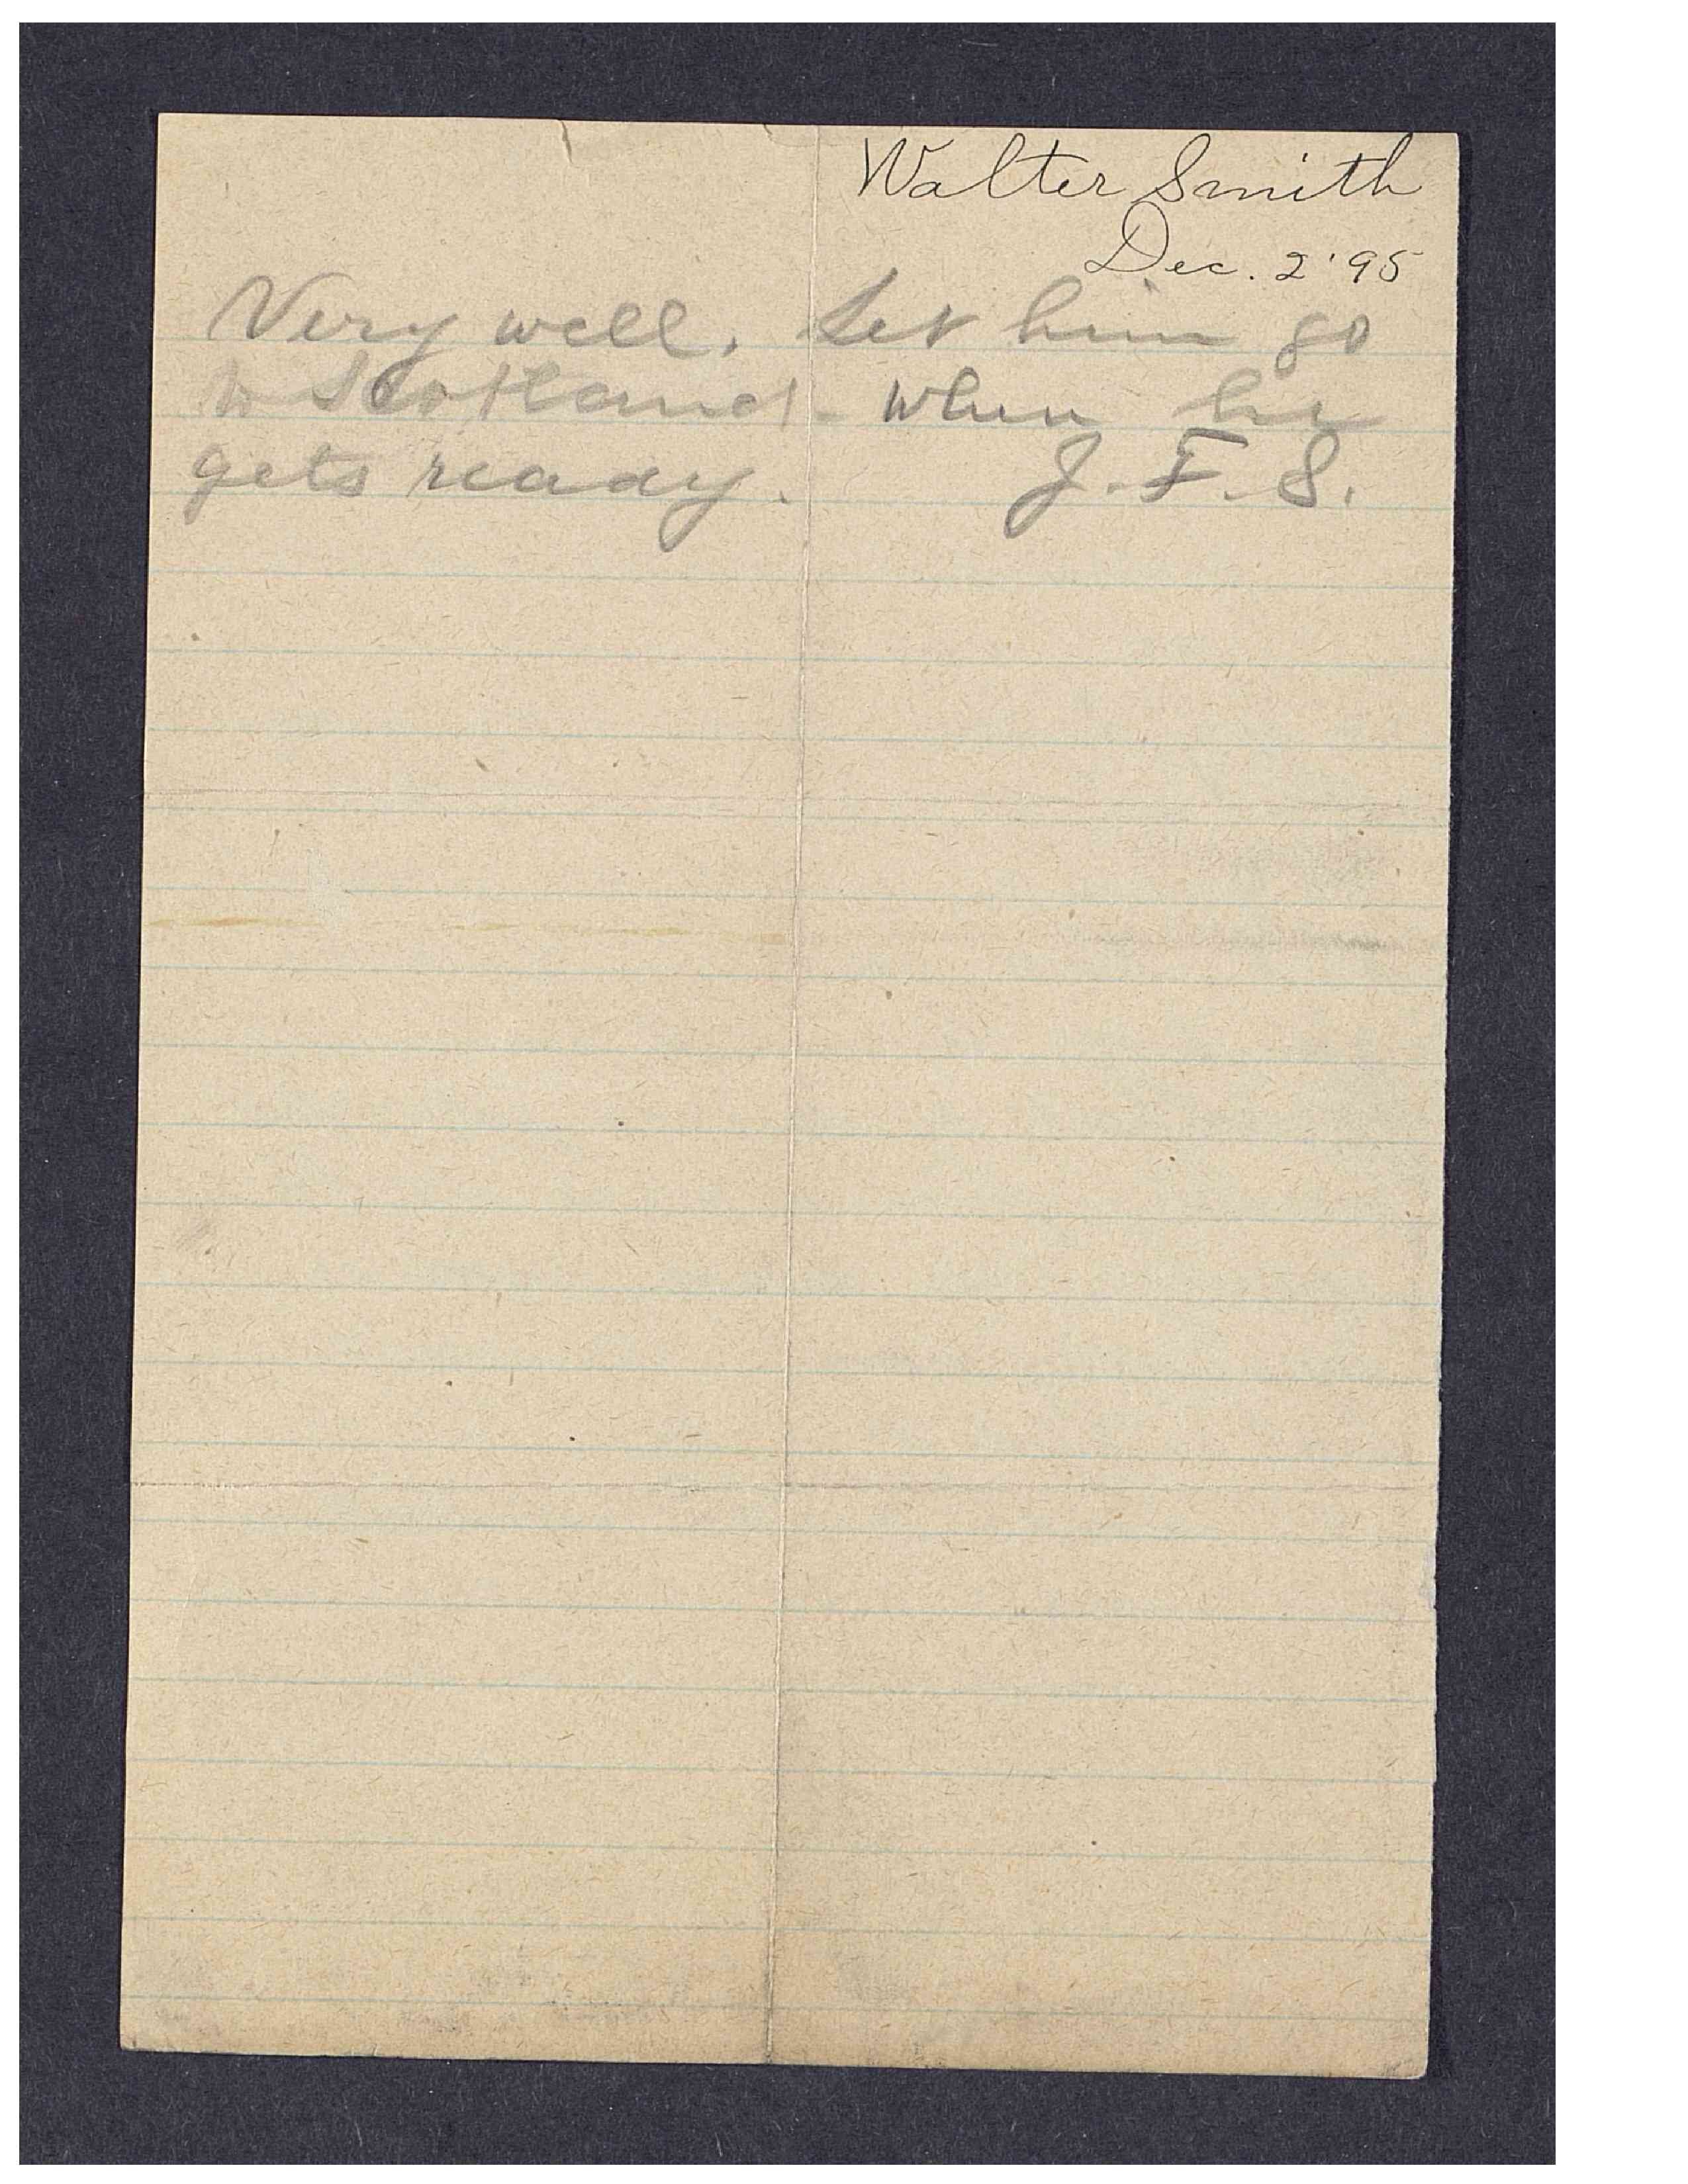 Walter Smith
Dec. 2 '95
Very well. Let him go
to Scotland - when he
gets ready. J. F. S.